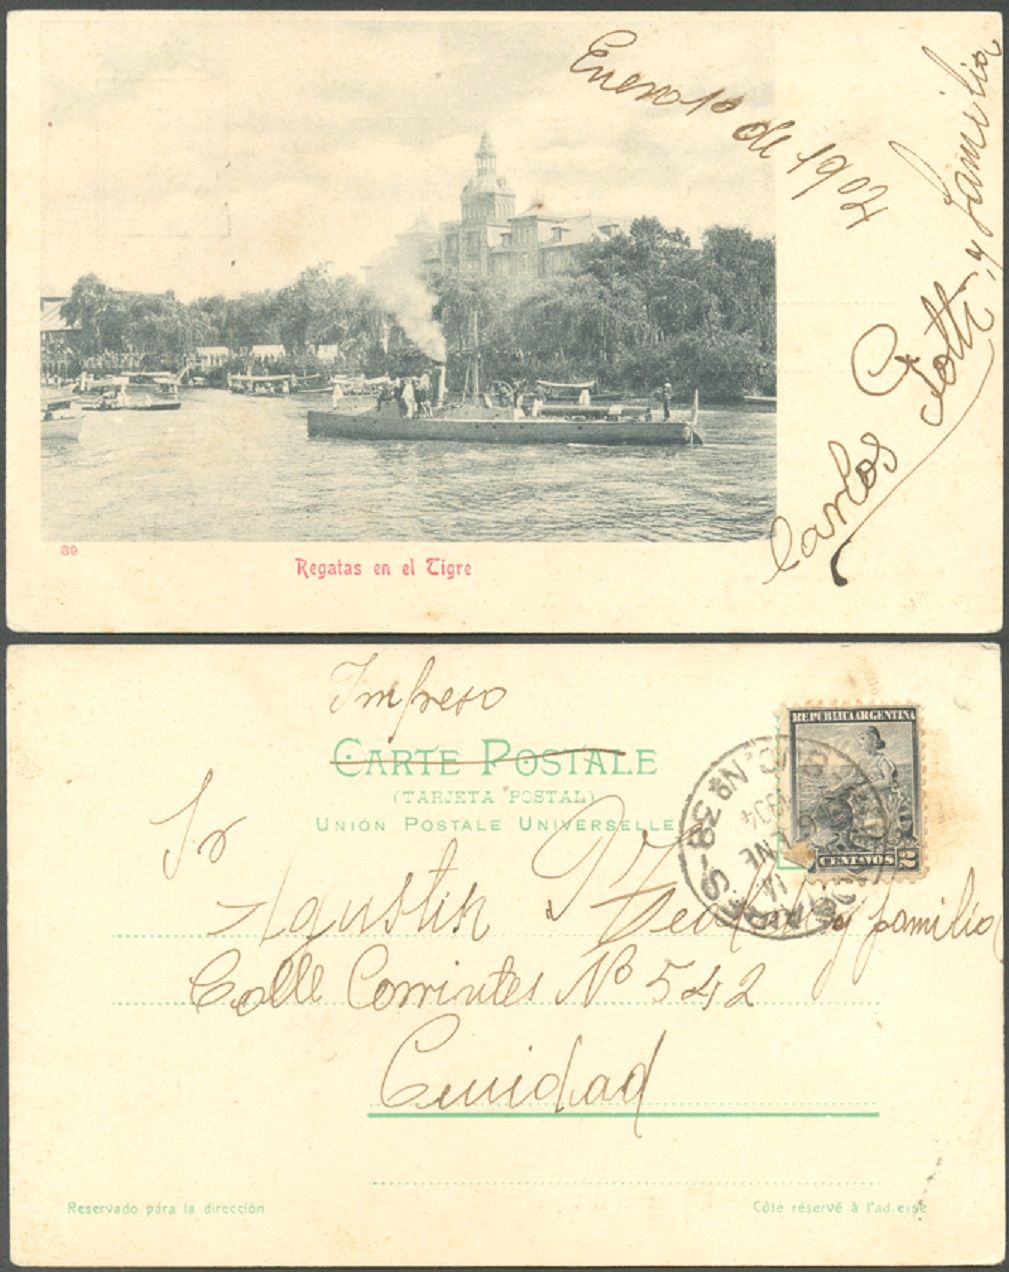 Enero 10
de 1904
Carlos Cotti y familia
39
Regatas en el Tigre
Impreso
CARTE POSTALE
(TARJETA POSTAL)
UNIÓN POSTALE UNIVERSELLE
REPUBLICA ARGENTINA
CENTAVOS 2
Nº 38
ENE
1904
Sr
Agustin y familia
Calle Corrintes Nº 542
Cuuidad
Reservado pára la dirección
Côté réservé à l'adresse